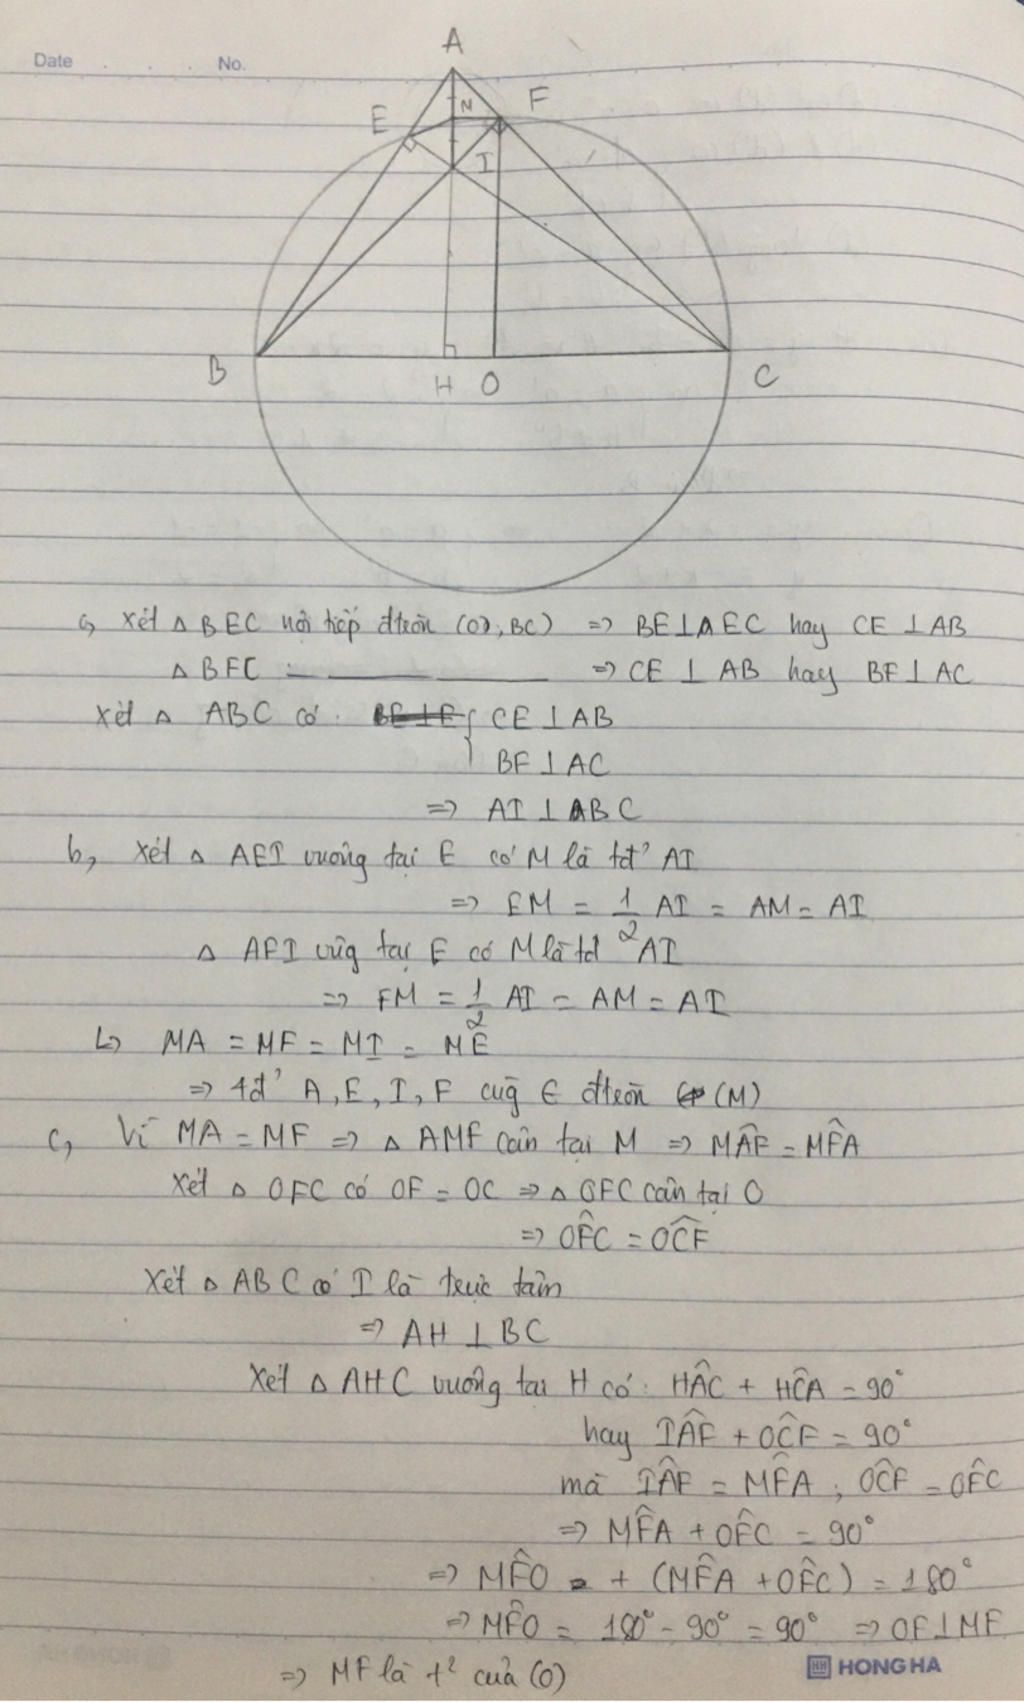 Date No.
A
E
N
F
I
B
H
O
C
a, Xét △ BEC nội tiếp đtròn (O), BC) => BE⊥AEC hay CE ⊥AB
△ BFC => CE ⊥ AB hay BF⊥AC
Xét △ ABC có : CE⊥AB
BF⊥AC
=> AI⊥BC
b, Xét △ AEI vuông tại E có M là tđ' AI
=> EM = 1/2 AI = AM = AI
△ AFI vuông tại E có M là tđ AI
=> FM = 1/2 AI = AM = AI
MA = MF = MI = ME
=> 4đ' A, E, I, F cùng ∈ đtròn (M)
c, Vì MA = MF => △ AMF cân tại M => MÂF = MF̂A
Xét △ OFC có OF = OC => △ OFC cân tại O
=> OF̂C = OĈF
Xét △ ABC có I là trực tâm
=> AH ⊥ BC
Xét △ AHC vuông tại H có: HÂC + HĈA = 90°
hay IÂF + OĈF = 90°
mà IÂF = MF̂A ; OĈF = OF̂C
=> MF̂A + OF̂C = 90°
=> MF̂O + (MF̂A + OF̂C) = 180°
=> MF̂O = 180° - 90° = 90° => OF⊥MF
=> MF là t² của (O)
HH HONG HA